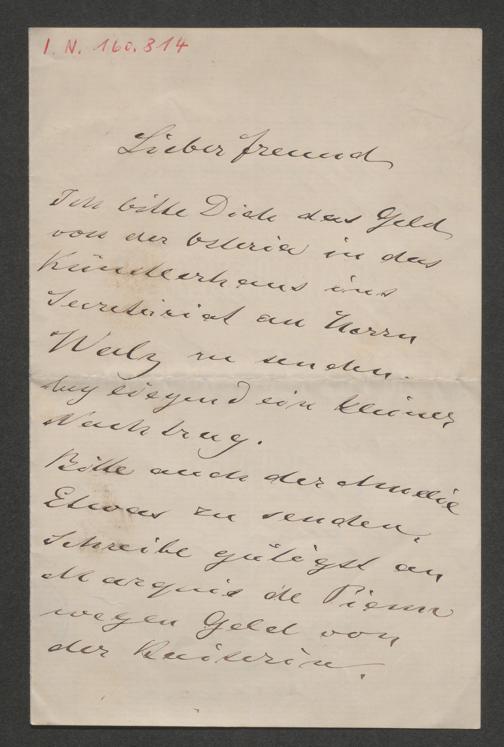 I. N. 160.814
Lieber Freund
Ich bitte Dich das Geld
von der Osteria in das
Künstlerhaus ins
Secretariat an Herrn
Walz zu senden.
Beyliegend ein kleiner
Nachtrag.
Bitte auch der Amelie
Etwas zu senden.
Schreibe gütigst an
Marquis de Pienn
wegen Geld von
der Kaiserin.